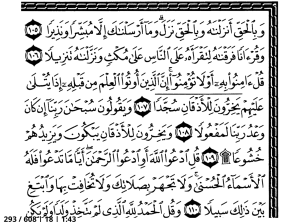 وَبِالْحَقِّ أَنزَلْنَاهُ وَبِالْحَقِّ نَزَلَ وَمَا أَرْسَلْنَاكَ إِلَّا مُبَشِّرًا وَنَذِيرًا ١٠٥
وَقُرْءَانًا فَرَقْنَاهُ لِتَقْرَأَهُ عَلَى النَّاسِ عَلَىٰ مُكْثٍ وَنَزَّلْنَاهُ تَنزِيلًا ١٠٦
قُلْ ءَامِنُوا بِهِ أَوْ لَا تُؤْمِنُوا إِنَّ الَّذِينَ أُوتُوا الْعِلْمَ مِن قَبْلِهِ إِذَا يُتْلَىٰ
عَلَيْهِمْ يَخِرُّونَ لِلْأَذْقَانِ سُجَّدًا ١٠٧ وَيَقُولُونَ سُبْحَانَ رَبِّنَا إِن كَانَ
وَعْدُ رَبِّنَا لَمَفْعُولًا ١٠٨ وَيَخِرُّونَ لِلْأَذْقَانِ يَبْكُونَ وَيَزِيدُهُمْ
خُشُوعًا ۩ ١٠٩ قُلِ ادْعُوا اللَّهَ أَوِ ادْعُوا الرَّحْمَٰنَ أَيًّا مَّا تَدْعُوا فَلَهُ
الْأَسْمَاءُ الْحُسْنَىٰ وَلَا تَجْهَرْ بِصَلَاتِكَ وَلَا تُخَافِتْ بِهَا وَابْتَغِ
بَيْنَ ذَٰلِكَ سَبِيلًا ١١٠ وَقُلِ الْحَمْدُ لِلَّهِ الَّذِي لَمْ يَتَّخِذْ وَلَدًا وَلَمْ يَكُن
293 / 608 | 18 | 1:43